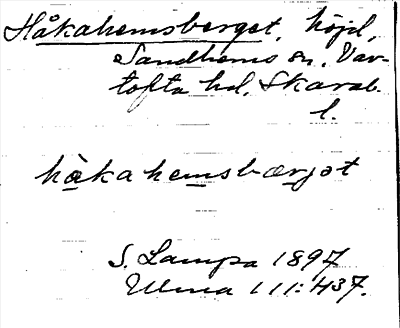 Håkahemsberget, höjd,
Sandhems sn, Var-
tofta hd, Skarab.
l.
håkahemsbærjət
S. Lampa 1897
Ulma 111:437.